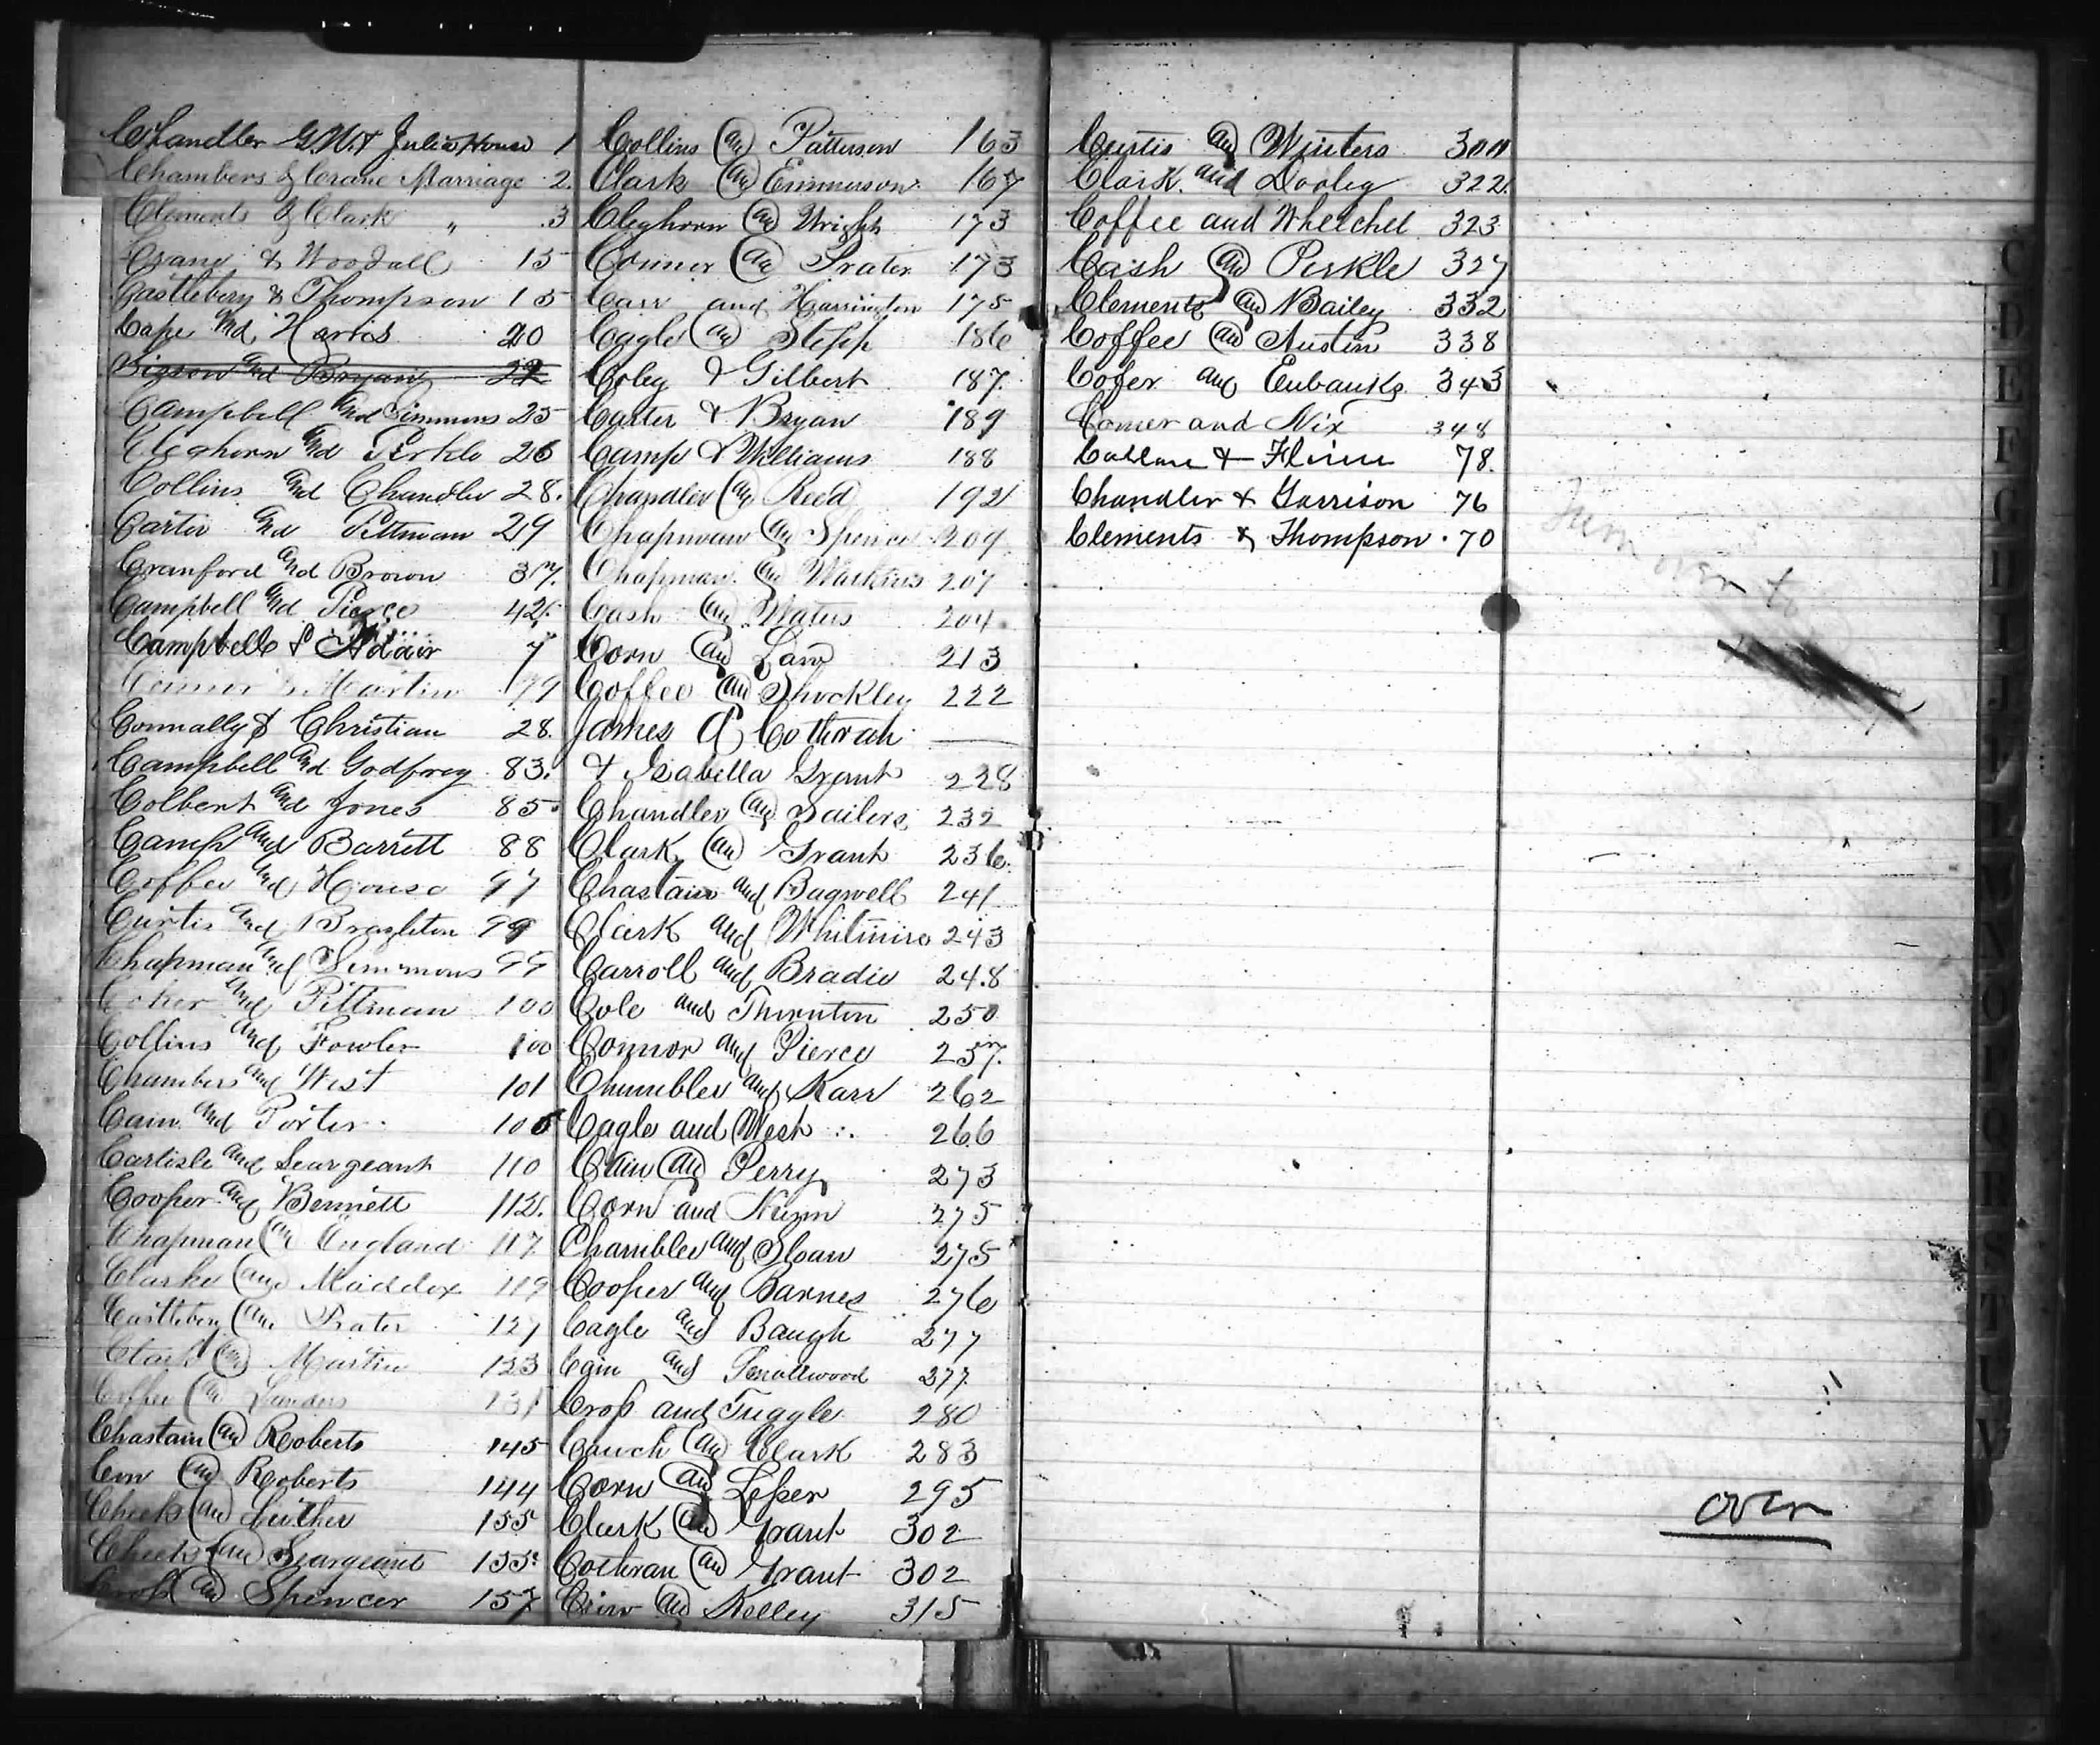 Chandler G.W. & Julia House 1
Chambers & Crane Marriage 2.
Clements & Clark " 3
Crane & Woodall 15
Castlebery & Thompson 15
Cape and Harris 20
and Bryan 22
Campbell and Simmons 25
Cleghorn and Pirkle 26
Collins and Chandler 28.
Carter and Pittman 29
Cranford and Brown 37.
Campbell and Pierce 42.
Campbell & Adair 7
& Martin 79
Connally & Christian 28.
Campbell and Godfrey 83.
Colbert and Jones 85.
Camp and Barrett 88
Coffee and House 97
Curtis and Brazleton 99
Chapman and Simmons 99
and Pittman 100
Collins and Fowler 100
Chambers and West 101
Cain and Porter. 105
Carlisle and Seargeant 110
Cooper and Bennett 112.
Chapman an England 117
Clarke an Maddox 119
Castlebery an Prater 127
Clark an Martin 123
Coffee an Sanders 131
Chastain an Roberts 145
an Roberts 144
Cheek an Luther 155
Cheek an Seargeant 155.
Cross an Spencer 157
Collins an Patterson 163
Clark an Emmerson 167
Cleghorn an Wright 173
Conner an Prater 173
Carr and Harrington 175
Cagle an Stepp 186
Coley & Gilbert 187.
Carter & Bryan 189
Camp & Williams 188
Chandler an Reed 192
Chapman an Spence 209
Chapman an Watkins 207
Cash an Waters 204
Corn an Law 213
Coffee an Shockley 222
James A Cothran
& Isabella Grant 228
Chandler an Sailers 232
Clark an Grant 236.
Chastain and Bagwell 241
Clark and Whitmire 243
Carroll and Bradie 248
Cole and Thornton 250
Connor and Pierce 257.
Chumbler and Karr 262
Cagle and West 266
Cain an Perry 273
Corn and Nunn 275
Chamblee and Sloan 275
Cooper and Barnes 276
Cagle and Baugh 277
Cain and Smallwood 277.
Cross and Tuggle 280
Couch an Clark 283
Corn an Leper 295
Clark an Grant 302
Cothran an Grant 302
an Kelley 315
Curtis an Winters 300
Clark and Dooley 322.
Coffee and Whelchel 323
Cash an Pirkle 327
Clements an Bailey 332
Coffee an Austin 338
Cofer and Eubanks 343
Comer and Nix 348
& Flinn 78.
Chandler & Garrison 76
Clements & Thompson. 70
Turn over to
over
C
D
E
F
G
H
I
J
K
L
M
N
O
P
Q
R
S
T
U
V